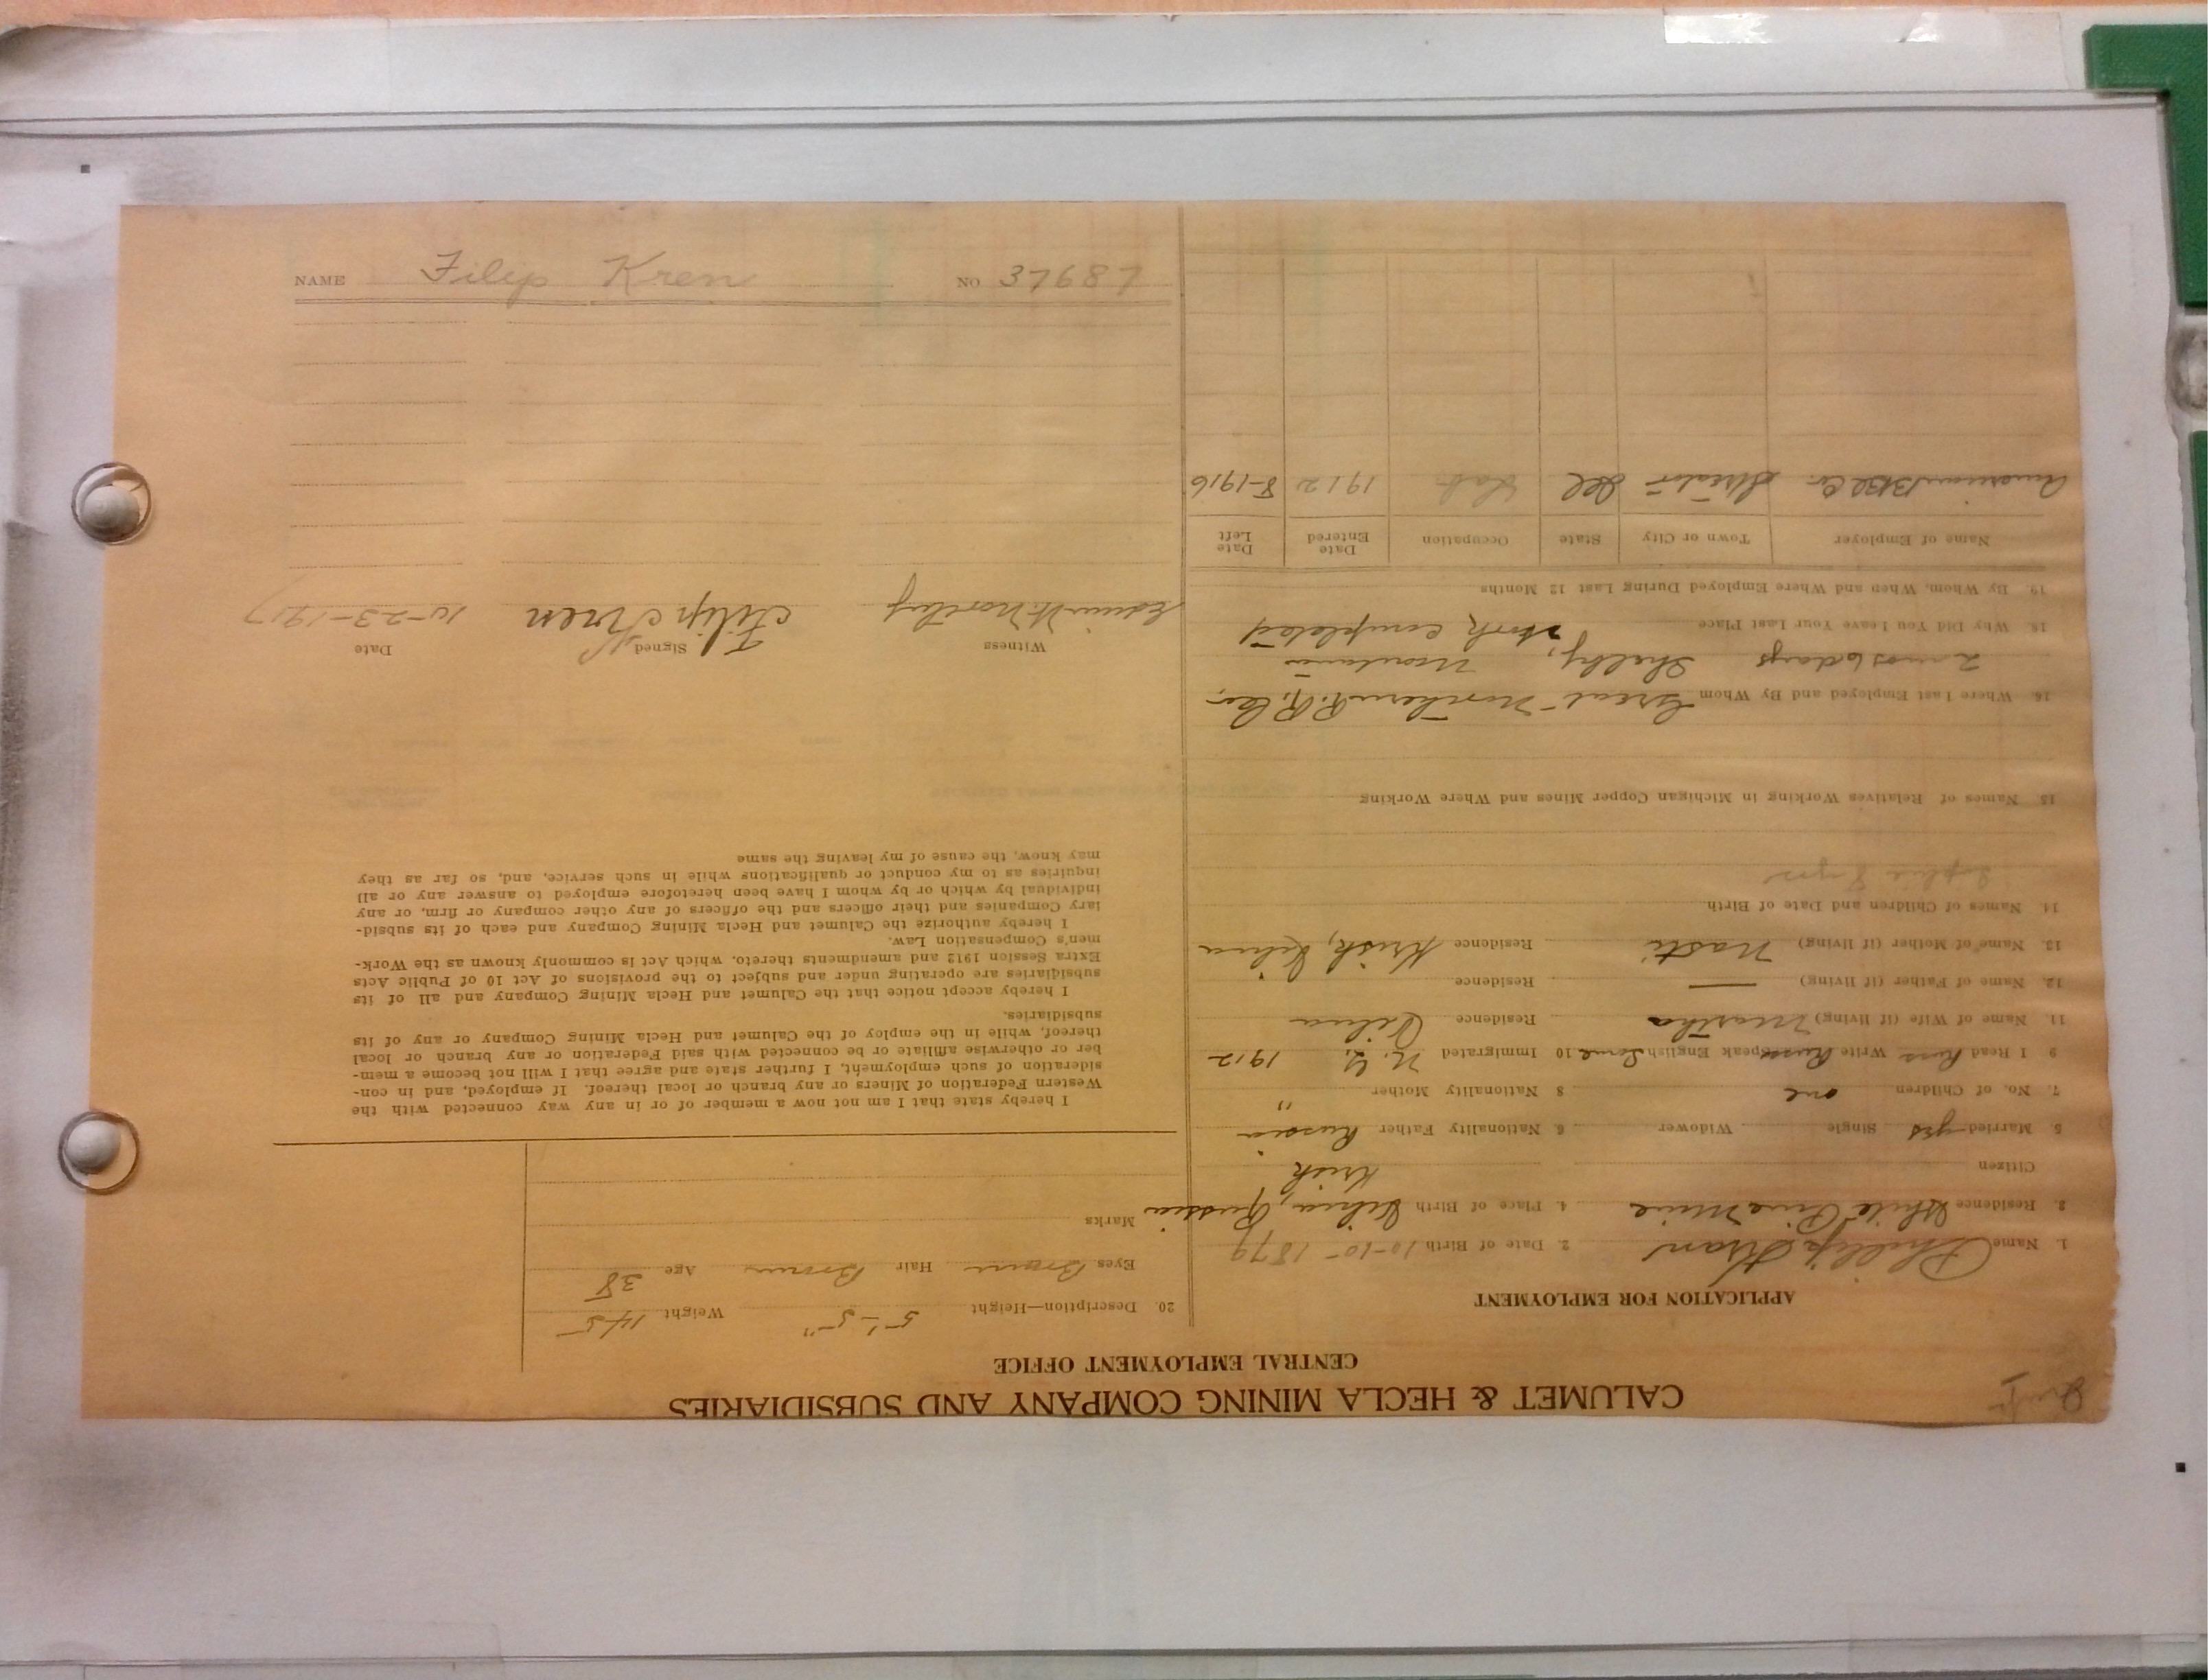 CALUMET & HECLA MINING COMPANY AND SUBSIDIARIES
CENTRAL EMPLOYMENT OFFICE
APPLICATION FOR EMPLOYMENT
1. Name Phillip Kran 2. Date of Birth 10-10-1879
3. Residence White Pine Mine 4. Place of Birth Vilna, Russia
Citizen Krish
5 Married yes Single Widower 6. Nationality Father Russia
7. No. of Children one 8 Nationality Mother "
9 I Read Russ Write Russ Speak English Some 10 Immigrated N. Y. 1912
11. Name of Wife (if living) Martha Residence Vilna
12. Name of Father (if living) — Residence
13. Name of Mother (if living) Nasti Residence Krish, Vilna
14. Names of Children and Date of Birth
Sophie 8 yrs
15. Names of Relatives Working in Michigan Copper Mines and Where Working
16. Where Last Employed and By Whom Great Northern R. R. Co.
2 mos 6 days Shelby, Montana
18. Why Did You Leave Your Last Place Work completed
19. By Whom, When and Where Employed During Last 12 Months
Name of Employer Town or City State Occupation Date Entered Date Left
American Ill Lab 1912 8-1916
20. Description—Height 5'-5" Weight 145
Eyes Brown Hair Brown Age 38
Marks
I hereby state that I am not now a member of or in any way connected with the
Western Federation of Miners or any branch or local thereof. If employed, and in con-
sideration of such employment, I further state and agree that I will not become a mem-
ber or otherwise affiliate or be connected with said Federation or any branch or local
thereof, while in the employ of the Calumet and Hecla Mining Company or any of its
subsidiaries.
I hereby accept notice that the Calumet and Hecla Mining Company and all of its
subsidiaries are operating under and subject to the provisions of Act 10 of Public Acts
Extra Session 1912 and amendments thereto, which Act is commonly known as the Work-
men's Compensation Law.
I hereby authorize the Calumet and Hecla Mining Company and each of its subsid-
iary Companies and their officers and the officers of any other company or firm, or any
individual by which or by whom I have been heretofore employed to answer any or all
inquiries as to my conduct or qualifications while in such service, and, so far as they
may know, the cause of my leaving the same
Witness Signed Date
Filip Kren 10-23-1917
NAME Filip Kren NO 37687